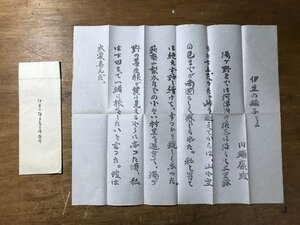 伊豆の踊子
川端康成
湯ヶ野までは河津川の渓谷に沿うて三里餘
りの下りだった。峠を越えてからは、山や空
の色までが南國らしく感じられた。私と男と
は絶えず話し續けて、すっかり親しくなった。
荻乗や梨本なぞの小さい村里を過ぎて、湯ヶ
野の藁屋根が麓に見えるようになった頃、私
は下田まで一緒に旅をしたいと言った。彼は
大変喜んだ。